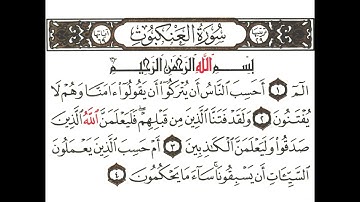 سُورَةُ الْعَنْكَبُوتِ
بِسْمِ اللَّهِ الرَّحْمَٰنِ الرَّحِيمِ
الٓمٓ ۝١ أَحَسِبَ النَّاسُ أَنْ يُتْرَكُوٓا۟ أَنْ يَقُولُوٓا۟ ءَامَنَّا وَهُمْ لَا
يُفْتَنُونَ ۝٢ وَلَقَدْ فَتَنَّا الَّذِينَ مِنْ قَبْلِهِمْ فَلَيَعْلَمَنَّ اللَّهُ الَّذِينَ
صَدَقُوا۟ وَلَيَعْلَمَنَّ الْكَٰذِبِينَ ۝٣ أَمْ حَسِبَ الَّذِينَ يَعْمَلُونَ
السَّيِّـَٔاتِ أَنْ يَسْبِقُونَا سَآءَ مَا يَحْكُمُونَ ۝٤